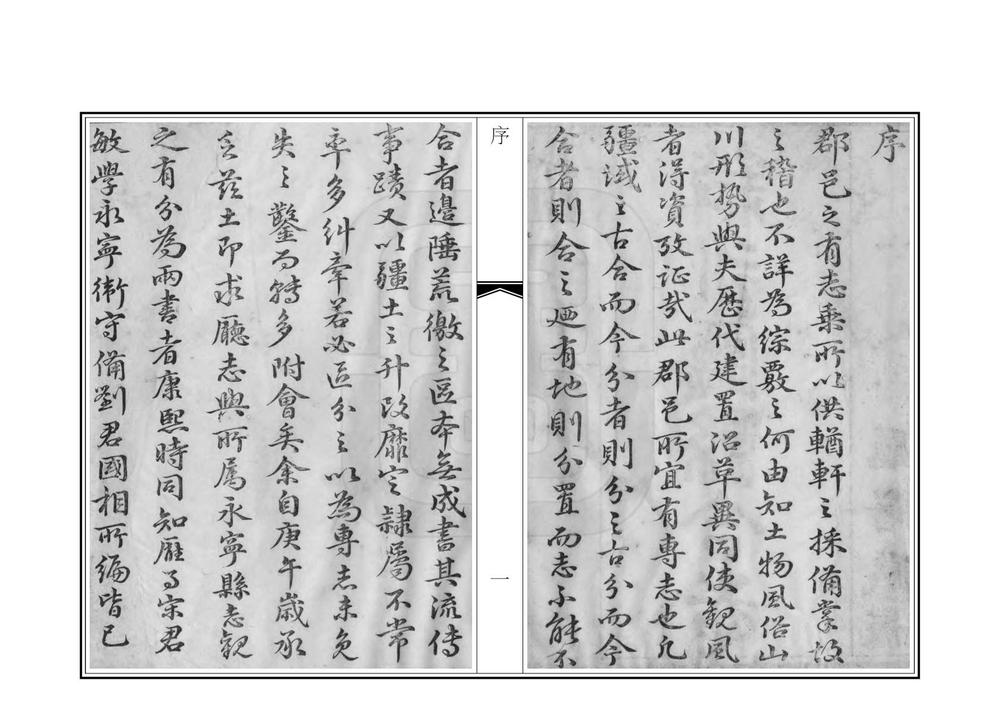 序
郡邑之有志乘所以供輶軒之採備掌故
之稽也不詳為綜覈之何由知土物風俗山
川形勢與夫歷代建置沿革異同使觀風
者得資攷証哉此郡邑所宜有專志也凡
疆域之古合而今分者則分之古分而今
合者則合之廼有地則分置而志不能不
序
一
合者邊陲荒徼之區本無成書其流傳
事蹟又以疆土之升改靡定隸屬不常
率多糾牽若必區分之以為專志未免
失之鑿而轉多附會矣余自庚午歲承
乏茲土即求廳志與所属永寧縣志觀
之有分為兩書者康熙時同知雁門宋君
敏學永寧衛守備劉君國相所編皆已